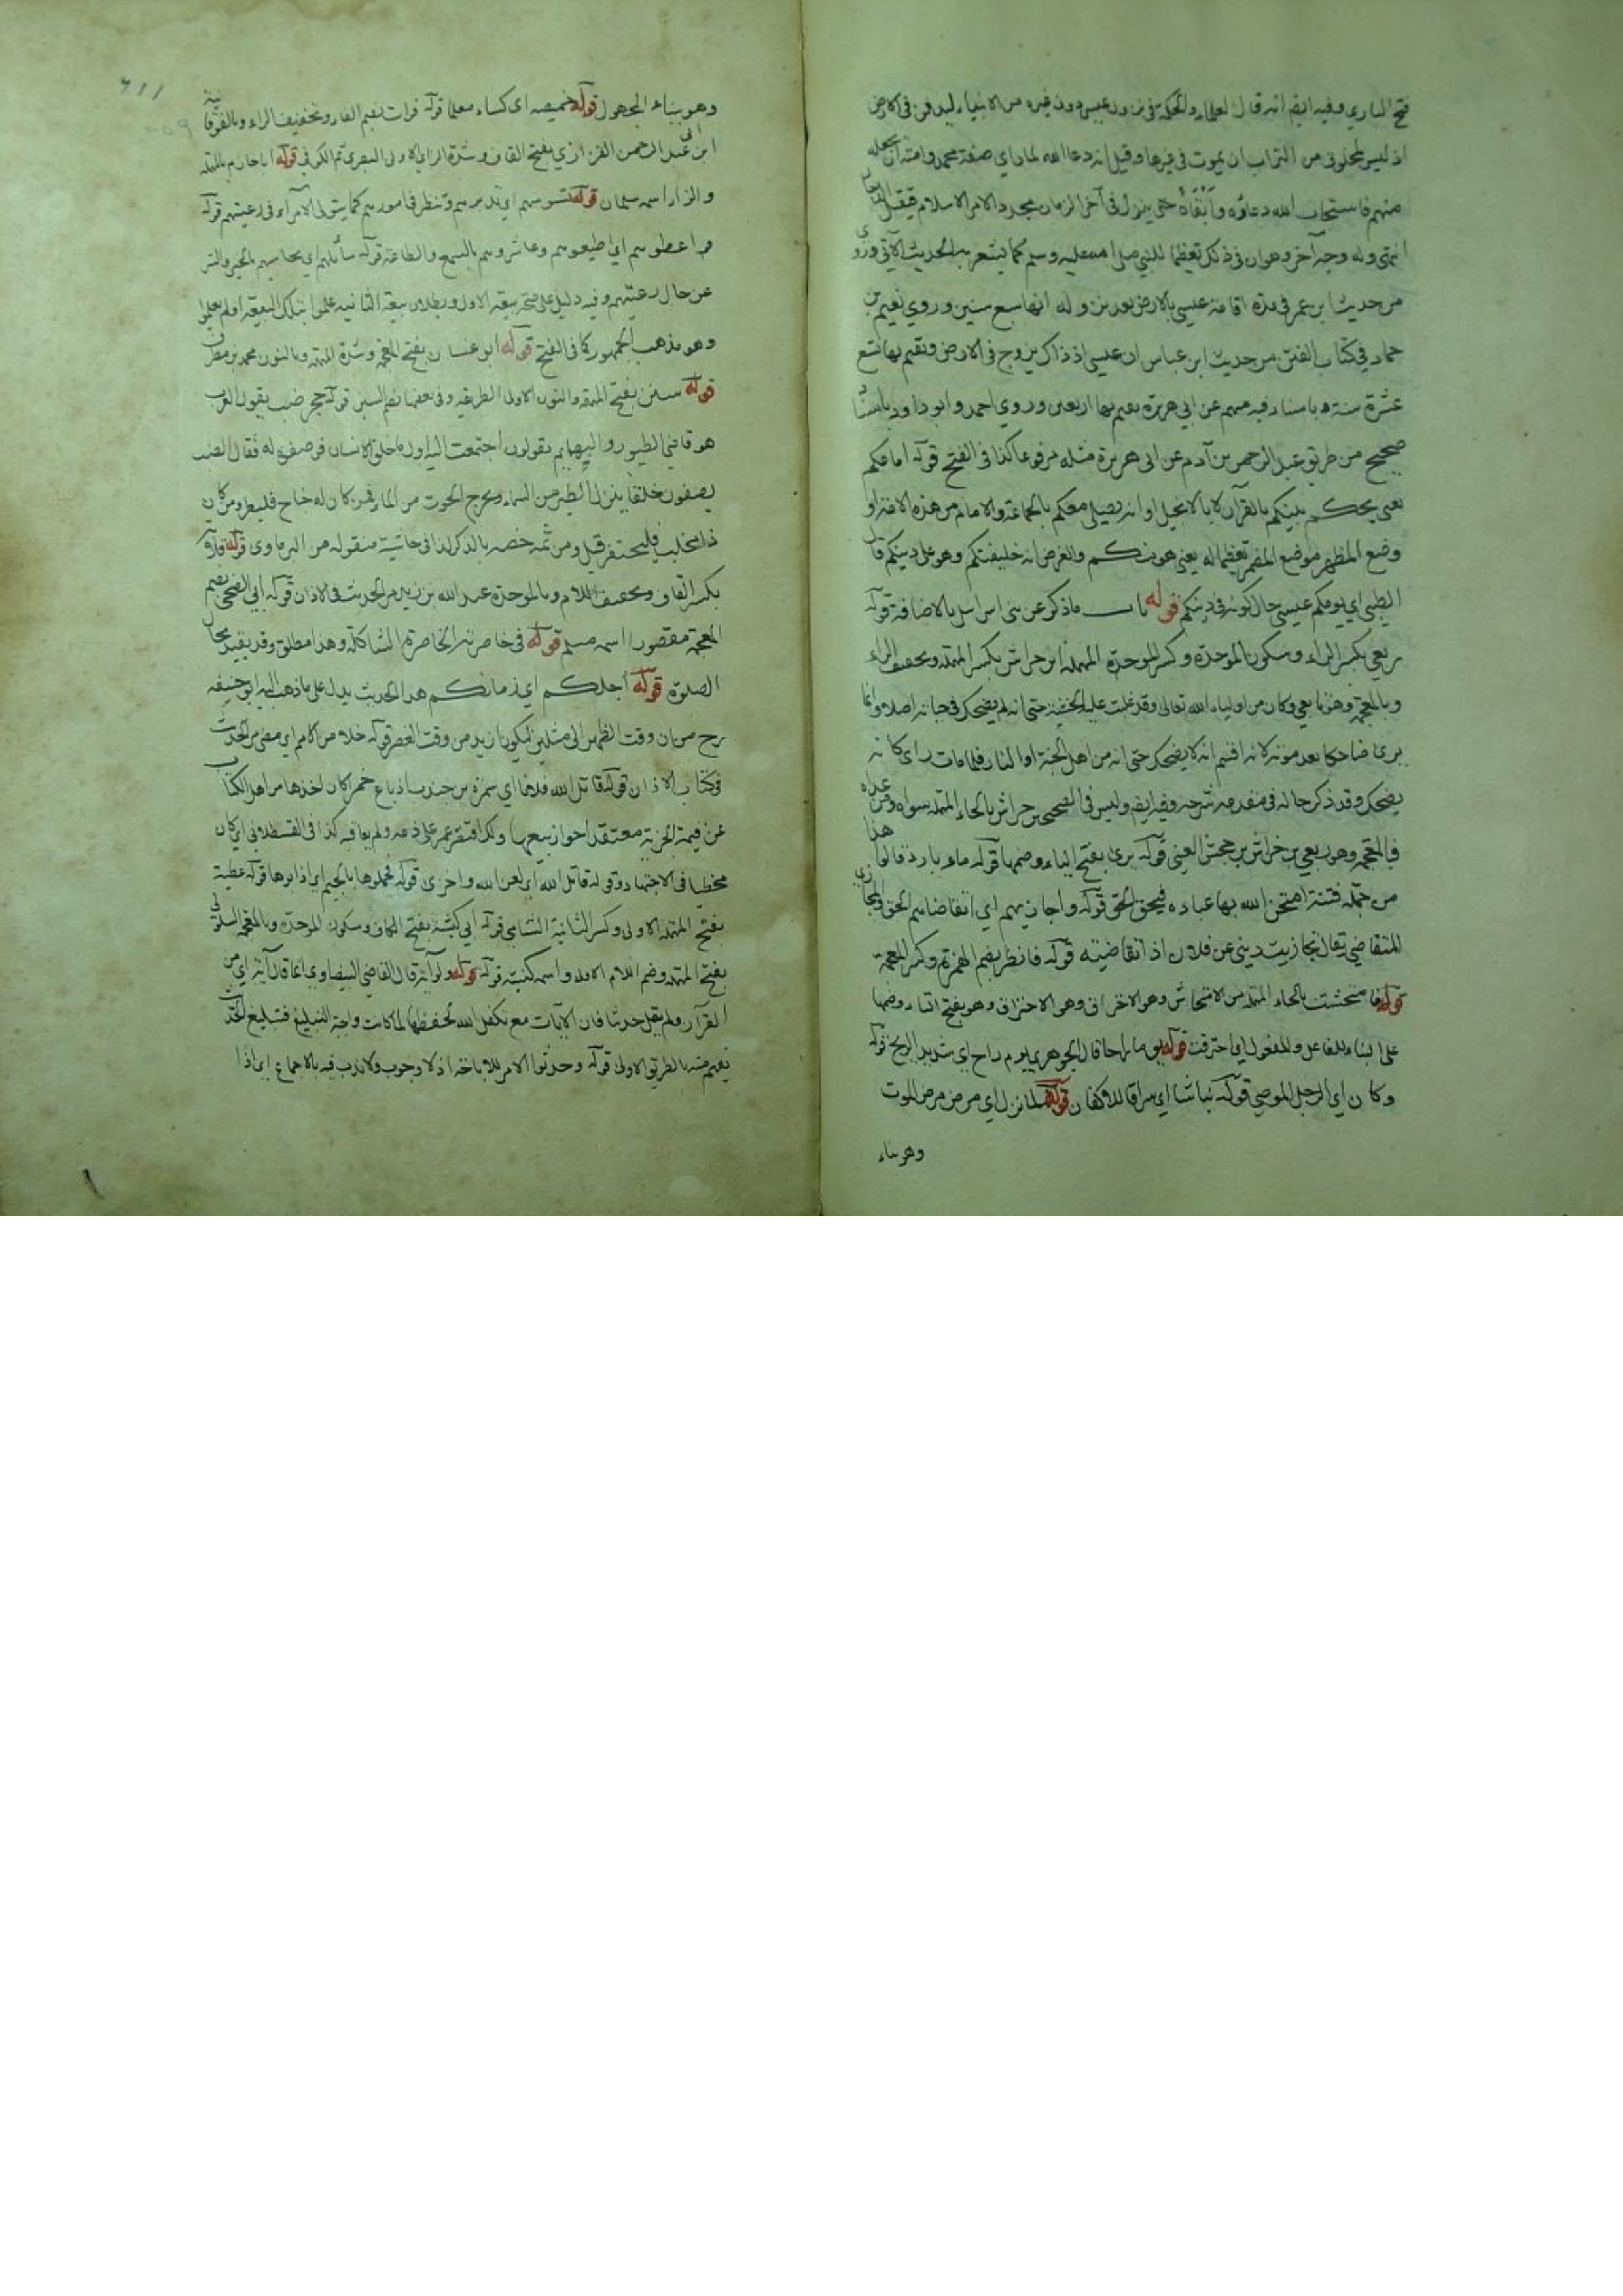 فتح الباري وفيه ايضا انه قال العلماء والحكمة في نزول عيسى دون غيره من الانبياء ليدفن في الارض
اذ ليس لمخلوق من التراب ان يموت في غيرها وقيل انه دعا الله لما راى صفة محمد وامته ان يجعله
منهم فاستجاب الله دعاؤه وأبقاه حتى ينزل في آخر الزمان مجدد الامر الاسلام
انتهى وله وجه آخر وهو ان في ذلك تعظيما للنبي صلى الله عليه وسلم كما يشعر به الحديث الآتي وروى
من حديث ابن عمر في مدة اقامة عيسى بالارض بعد نزوله انها سبع سنين وروي نعيم بن
حماد في كتاب الفتن من حديث ابن عباس ان عيسى اذ ذاك يتزوج في الارض ويقيم بها تسع
عشرة سنة وباسناد فيه مبهم عن ابي هريرة يقيم بها اربعين وروي احمد وابو داود باسناد
صحيح من طريق عبد الرحمن بن آدم عن ابي هريرة مثله مرفوعا كذا في الفتح قوله امامكم
يعني يحكم بينكم بالقرآن لا بالانجيل او انه يصلي معكم بالجماعة والامام من هذه الامة او
وضع المظهر موضع المضمر تعظيما له يعني هو منكم والغرض انه خليفتكم وهو على دينكم قال
الطيبي اي يؤمكم عيسى حال كونه في دينكم قوله باب ما ذكر عن بني اسرائيل بالاضافة قوله
ربعي بكسر الراء وسكون الموحدة وكسر المهملة ابن حراش بكسر المهملة وتخفيف الراء
وبالمعجمة وهو تابعي وكان من اولياء الله تعالى وقد غلبت عليه الخشية حتى انه لم يضحك في حياته اصلا وانما
يرى ضاحكا بعد موته لانه اقسم انه لا يضحك حتى انه من اهل الجنة او النار فلما مات راى كانه
يضحك وقد ذكر حاله في مقدمة شرحه وفيه ايضا وليس في الصحيحين حراش بالحاء المهملة سواه ومن عداه
فبالمعجمة وهو ربعي بن خراش بن جحش العبسي قوله يرى بفتح الياء وضمها قوله ماء بارد قالوا هذا
من جملة فتنة امتحن الله بها عباده فيحق الحق قوله واجازيهم اي اتقاضاهم الحق والمجازي
المتقاضي يقال تجازيت ديني عن فلان اذا تقاضيته قوله فانظر بضم الهمزة وكسر المعجمة
قوله فامتحشت بالحاء المهملة من الامتحاش وهو الاحتراق وهو بفتح التاء وضمها
على البناء للفاعل وللمفعول اي احترقت قوله يوما راحا قال الجوهري يوم راح اي شديد الريح قوله
وكان اي الرجل الموصي قوله نباشا اي سراقا للاكفان قوله لما نزل اي مرض مرض الموت
وهو بناء
وهو ببناء المجهول قوله خميصة اي كساء معلما قوله فرات بضم الفاء وتخفيف الراء وبالفوقانية
ابن ابي عبد الرحمن القزازي بفتح القاف وشدة الزاي الاولى البصري ثم الكوفي قوله ابا حازم بالمهملة
والزاء اسمه سلمان قوله تسوسهم اي تدبرهم وتنظر في امورهم كما يتولى الامراء في رعيتهم قوله
واعطوهم اي اطيعوهم وعاشروهم بالسمع والطاعة قوله سائلهم اي يحاسبهم بالخير والشر
عن حال رعيتهم وفيه دليل على صحة بيعة الاول وبطلان بيعة الثانية علموا بتلك البيعة او لم يعلموا
وهو مذهب الجمهور كما في الفتح قوله ابو غسان بفتح المعجمة وشدة المهملة وبالنون محمد بن مطرف
قوله سنن بفتح المهملة والنون الاولى الطريقة وفي بعضها بضم السين قوله جحر ضب يقول العرب
هو قاضي الطيور والبهايم يقولون اجتمعت اليه اول ما خلق الانسان فوصفوه له فقال الضب
يصفون خلقا ينزل الطير من السماء ويخرج الحوت من الماء فمن كان له جناح فليطر ومن كان
ذا مخلب فليحتفر قيل ومن ثمه خصه بالذكر كذا في حاشية منقوله من البرماوي قوله قلابة
بكسر القاف وتخفيف اللام وبالموحدة عبد الله بن زيد مر الحديث في الاذان قوله ابي الضحى بضم
المعجمة مقصورا اسمه مسلم قوله في خاصرته الخاصرة الشاكلة وهذا مطلق وقد يقيد بحال
الصلوة قوله اجلكم اي زمانكم هذا الحديث يدل على ما ذهب اليه ابو حنيفة
رح من ان وقت الظهر الى مثلين ليكون ازيد من وقت العصر قوله خلا من الامم اي مضى مر الحديث
في كتاب الاذان قوله قاتل الله فلانا اي سمرة بن جندب اذ باع خمرا كان اخذها من اهل الكتاب
عن قيمة الجزية معتقدا جواز بيعها ولذا اقتصر عمر على ذمه ولم يعاقبه كذا في القسطلاني اي كان
مخطيا في الاجتهاد وقوله قاتل الله اي لعن الله واخزى قوله فجملوها بالجيم اي اذابوها قوله عطية
بفتح المهملة الاولى وكسر الثانية الشامي قوله ابي كبشة بفتح الكاف وسكون الموحدة وبالمعجمة السلولي
بفتح المهملة وضم اللام الاولى واسمه كنيته قوله قوله ولو آية قال القاضي البيضاوي انما قال آية اي من
القرآن ولم يقل حديثا فان الآيات مع تكفل الله لحفظها لما كانت واجبة التبليغ فتبليغ الحديث
يفهم منه بالطريق الاولى قوله وحدثوا الامر للاباحة اذ لا وجوب ولا ندب فيه بالاجماع اي اذا